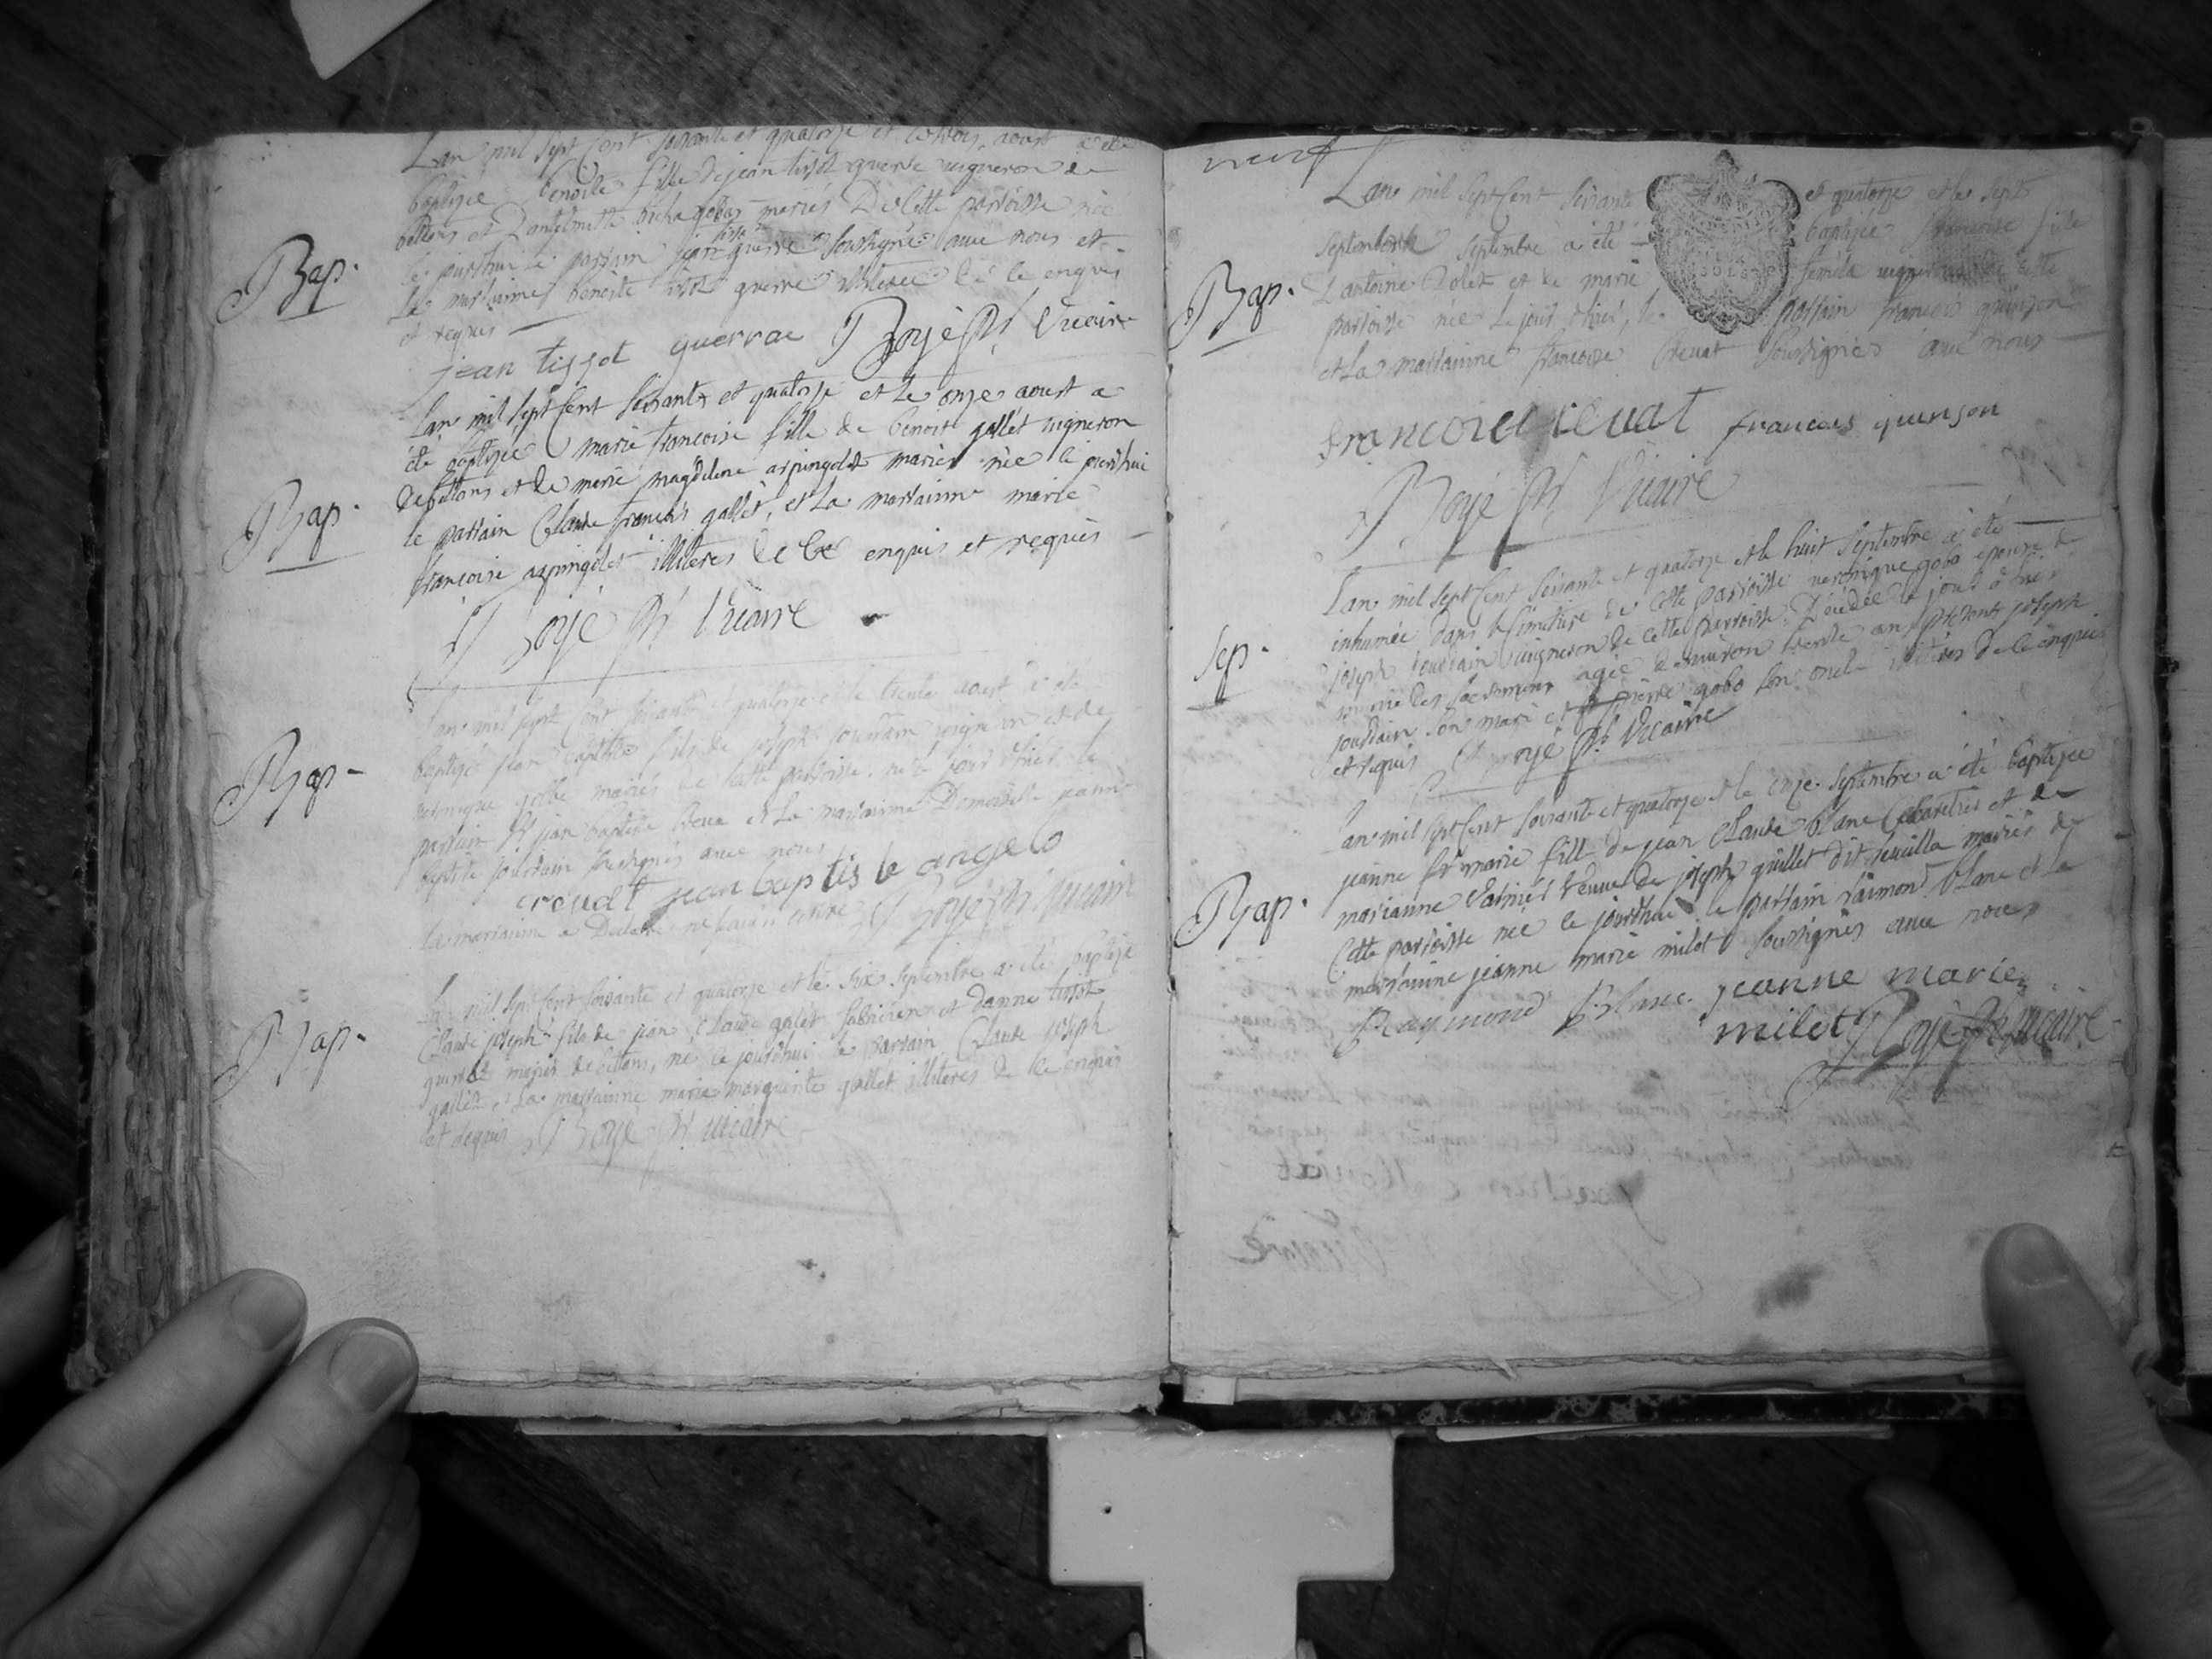 Lan mil sept Cent soixante et quatorze et le trois aoust a été
baptizée benoite fille de jean tissot guerre vigneron de
bettons et mariés De Cette parroisse née
ce jourdhui le parrain jean tissot guerre soussigné avec nous et
la marrainne benoite tissot guerre illiterée de ce enquis
et requis
jean tissot guerrae Boyé Ptre Vicaire
Bap.
Lan mil sept Cent soixante et quatorze et le onze aoust a
été baptizée marie francoise fille de benoit gallet vigneron
de bettons et de marie magdelene arpingelet mariés née ce jourdhui
le parrain Claude francois gallet, et La marrainne marie
francoise arpingelet illiteres de Ce enquis et requis
Boyé Ptre Vicaire
Bap.
Lan mil sept Cent soixante et quatorze et le trente aoust a été
baptizé jean baptiste fils de joseph jourdain vigneron et de
veronique gobo mariés de Cette parroisse, né le jour d'hier le
parrain Sr jean baptiste Crevat et La marrainne Demoiselle jeanne
baptiste jourdain soussignés avec nous
crevat jean baptis le angelo
La marrainne a Declaré ne savoir ecrire Boyé Ptre Vicaire
Bap.
Lan mil sept Cent soixante et quatorze et le six septembre a été baptizé
Claude joseph fils de jean Claude galet et danne tissot
mariés de bettons, né ce jourdhui le parrain Claude joseph
gallet, La marrainne marie marguerite gallet illiteres de Ce enquis
et requis Boyé Ptre vicaire
Bap.
neuf
Lan mil sept Cent soixante et quatorze et le sept
septembre a été baptizée francoise fille
Dantoine Dolet et de marie vigneron de cette
parroisse née le jour d'hier, le parrain francois quinson
et La marrainne francoise Crevat soussignés avec nous
Bap.
francoise crevat francois quinson
Boyé Ptre Vicaire
Lan mil sept Cent soixante et quatorze et le huit septembre a été
inhumée dans le Cimetiere de Cette parroisse veronique gobo epouse de
joseph jourdain vigneron de Cette parroisse, Decédée le jour d'hier
munie des sacremens agée denviron trente ans présents joseph
jourdain son mari et pierre gobo son oncle illiteres de Ce enquis
et requis Boyé Ptre Vicaire
Sep.
Lan mil sept Cent soixante et quatorze et le onze septembre a été baptizée
jeanne marie fille de jean Claude blanc Cabaretier et de
marianne veuve de joseph guillet dit mariés de
Cette parroisse née ce jourdhui le parrain raimond blanc et la
marrainne jeanne marie milet soussignés avec nous
Bap.
Raymond Blanc jeanne marie
milet Boyé Ptre vicaire